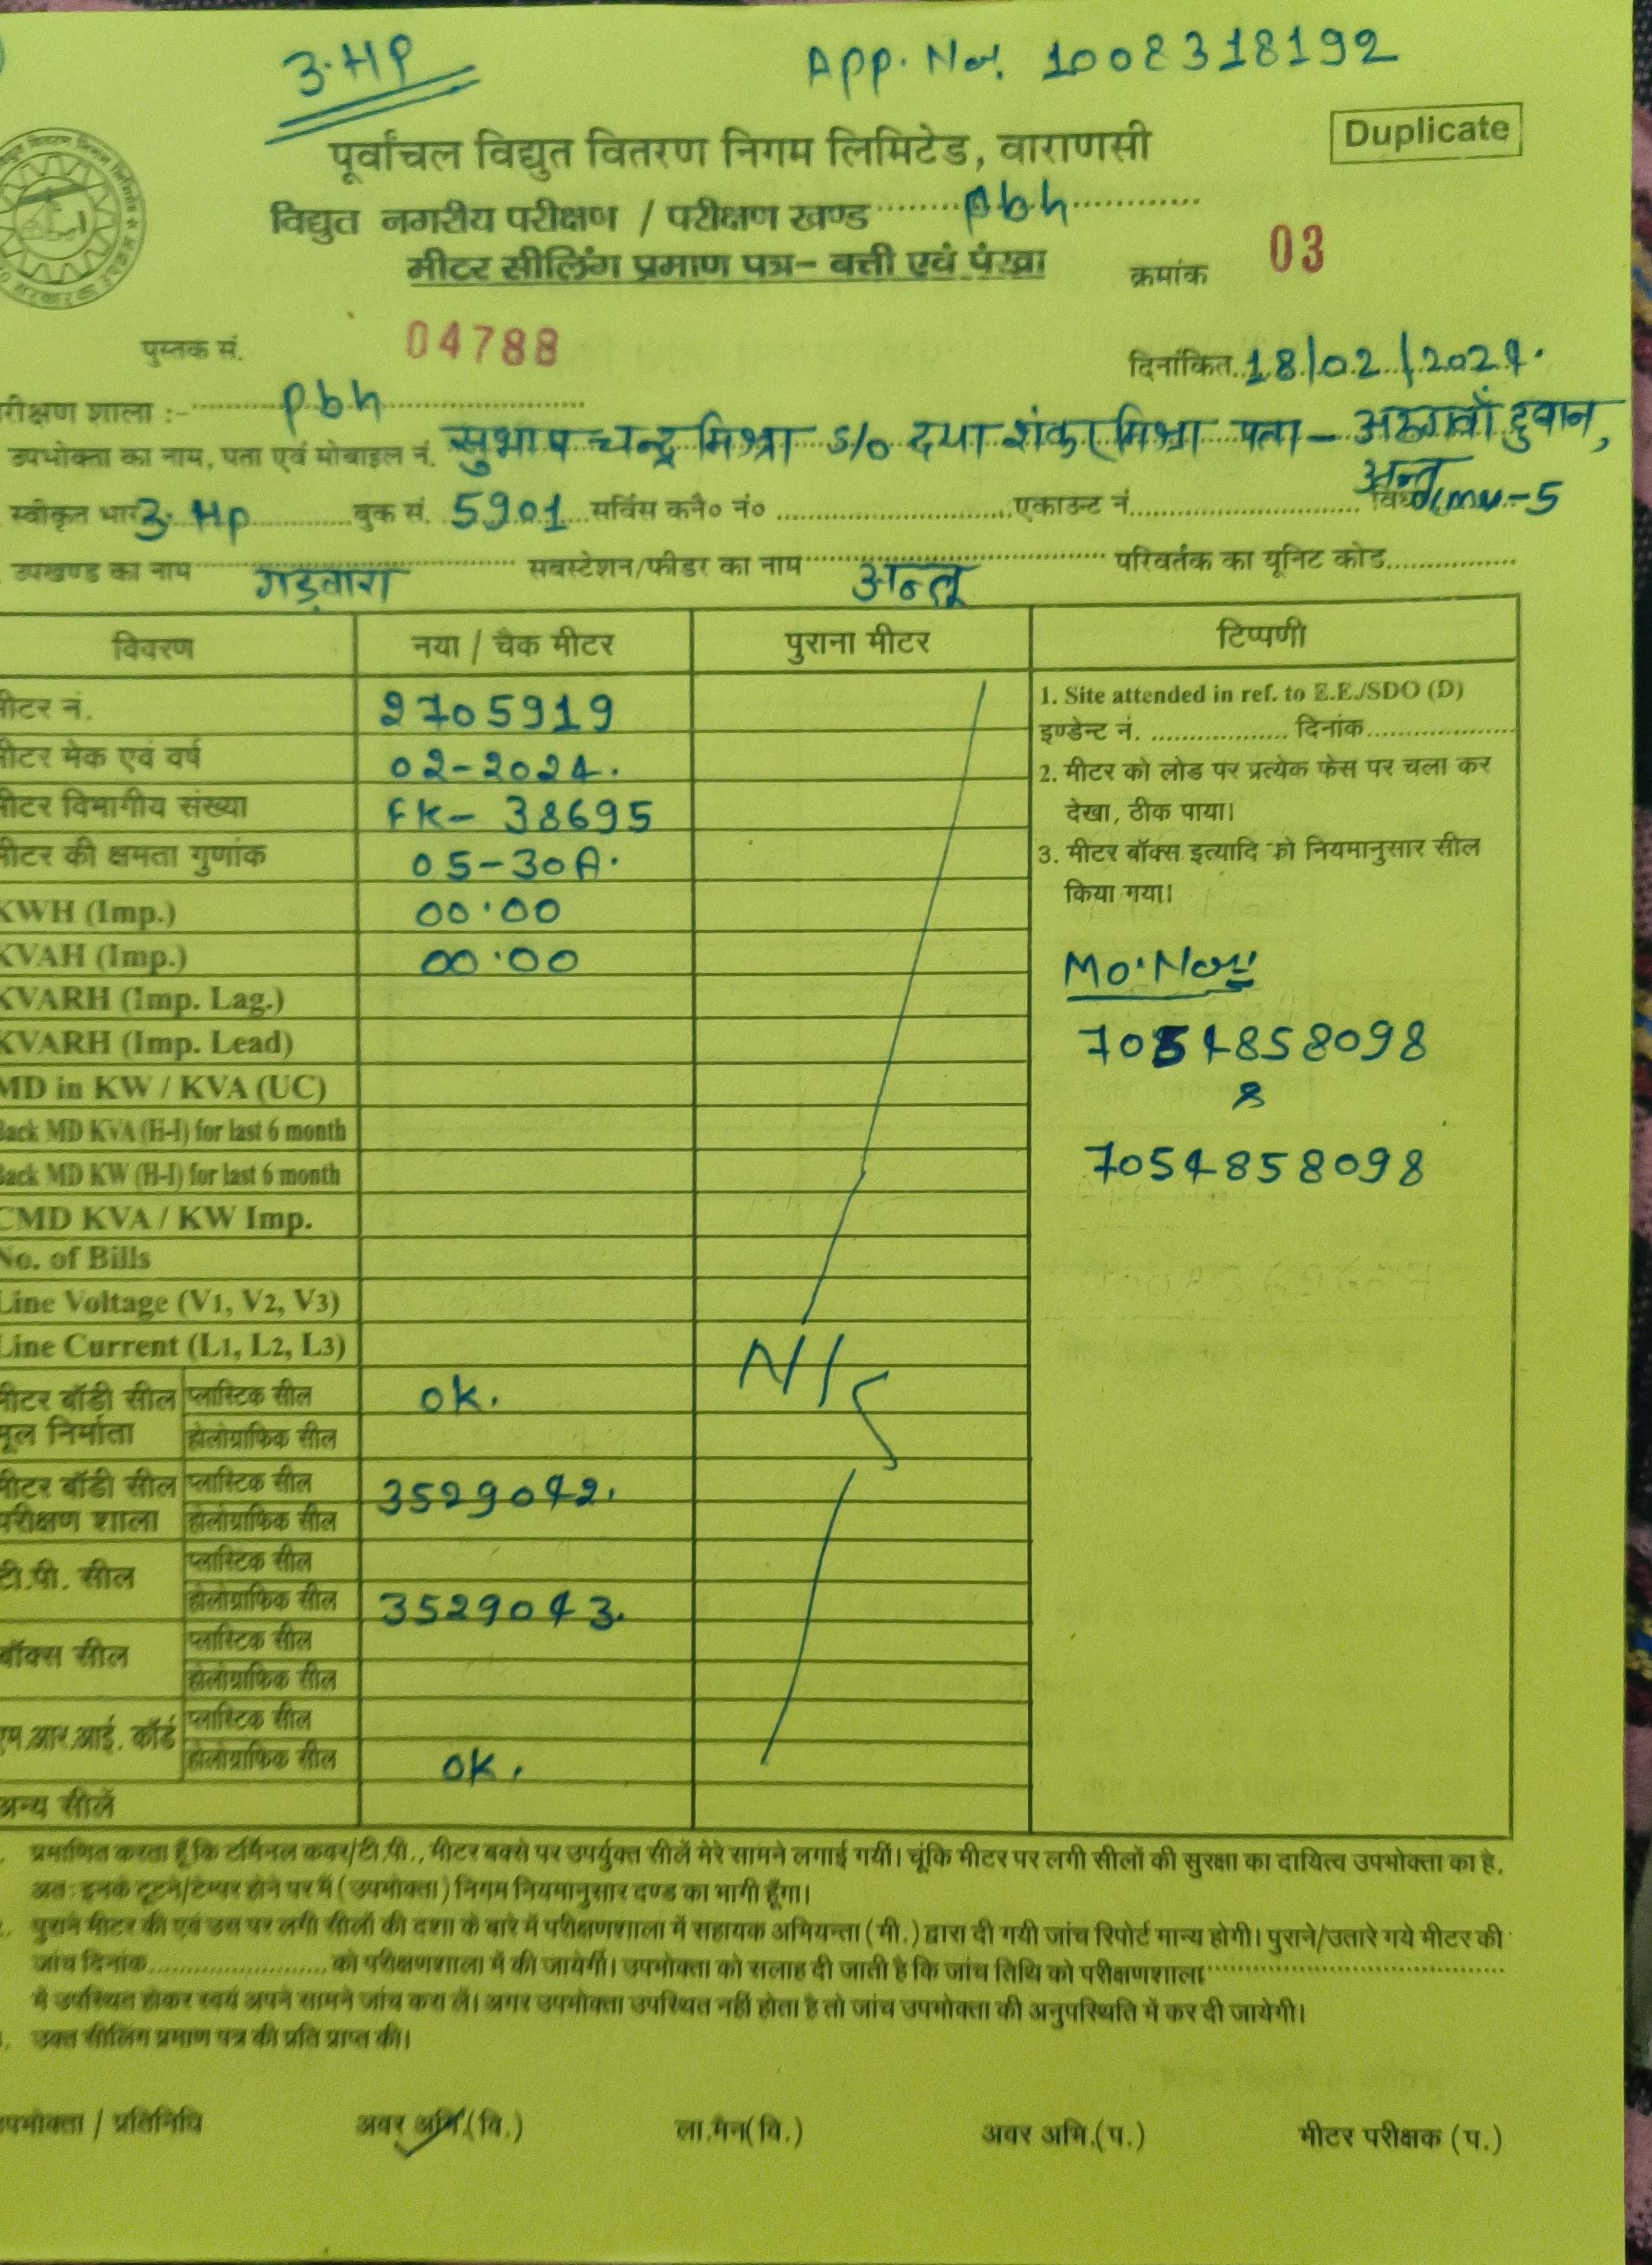 3.HP
App. No. 1008318192
Duplicate
पूर्वांचल विद्युत वितरण निगम लिमिटेड, वाराणसी
विद्युत नगरीय परीक्षण / परीक्षण खण्ड pbh
मीटर सीलिंग प्रमाण पत्र– बत्ती एवं पंखा
क्रमांक 03
पुस्तक सं. 04788
दिनांकित 18/02/2024.
रीक्षण शाला :- pbh
उपभोक्ता का नाम, पता एवं मोबाइल नं. सुभाष चन्द्र मिश्रा S/o दया शंकर मिश्रा पता – दुबान,
अन्तू
स्वीकृत भार 3. Hp बुक सं. 5901 सर्विस कनै० नं० एकाउन्ट नं. विधा -5
उपखण्ड का नाम गड़वारा सबस्टेशन/फीडर का नाम अन्तू परिवर्तक का यूनिट कोड
विवरण नया / चैक मीटर पुराना मीटर टिप्पणी
मीटर नं. 2705919
मीटर मेक एवं वर्ष 02-2024.
मीटर विभागीय संख्या FK- 38695
मीटर की क्षमता गुणांक 05-30A.
KWH (Imp.) 00.00
KVAH (Imp.) 00.00
KVARH (Imp. Lag.)
KVARH (Imp. Lead)
MD in KW / KVA (UC)
Back MD KVA (H-I) for last 6 month
Back MD KW (H-I) for last 6 month
CMD KVA / KW Imp.
No. of Bills
Line Voltage (V1, V2, V3)
Line Current (L1, L2, L3)
मीटर बॉडी सील प्लास्टिक सील ok.
मूल निर्माता होलोग्राफिक सील
मीटर बॉडी सील प्लास्टिक सील 3529042.
परीक्षण शाला होलोग्राफिक सील
टी.पी. सील प्लास्टिक सील
होलोग्राफिक सील 3529043.
बॉक्स सील प्लास्टिक सील
होलोग्राफिक सील
एम.आर.आई. कॉर्ड प्लास्टिक सील
होलोग्राफिक सील ok.
अन्य सीलें
1. Site attended in ref. to E.E./SDO (D)
इण्डेन्ट नं. दिनांक
2. मीटर को लोड पर प्रत्येक फेस पर चला कर
देखा, ठीक पाया।
3. मीटर बॉक्स इत्यादि को नियमानुसार सील
किया गया।
Mo. No.
7054858098
&
7054858098
प्रमाणित करता हूँ कि टर्मिनल कवर/टी.पी., मीटर बक्से पर उपर्युक्त सीलें मेरे सामने लगाई गयीं। चूंकि मीटर पर लगी सीलों की सुरक्षा का दायित्व उपभोक्ता का है,
अतः इनके टूटने/टेम्पर होने पर मैं (उपभोक्ता) निगम नियमानुसार दण्ड का भागी हूँगा।
पुराने मीटर की एवं उस पर लगी सीलों की दशा के बारे में परीक्षणशाला में सहायक अभियन्ता (मी.) द्वारा दी गयी जांच रिपोर्ट मान्य होगी। पुराने/उतारे गये मीटर की
जांच दिनांक को परीक्षणशाला में की जायेगी। उपभोक्ता को सलाह दी जाती है कि जांच तिथि को परीक्षणशाला
में उपस्थित होकर स्वयं अपने सामने जांच करा लें। अगर उपभोक्ता उपस्थित नहीं होता है तो जांच उपभोक्ता की अनुपस्थिति में कर दी जायेगी।
उक्त सीलिंग प्रमाण पत्र की प्रति प्राप्त की।
उपभोक्ता / प्रतिनिधि अवर अभि.(वि.) ला.मैन(वि.) अवर अभि.(प.) मीटर परीक्षक (प.)